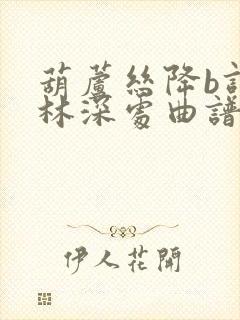 葫蘆絲降b
林深處曲譜
伊人花開